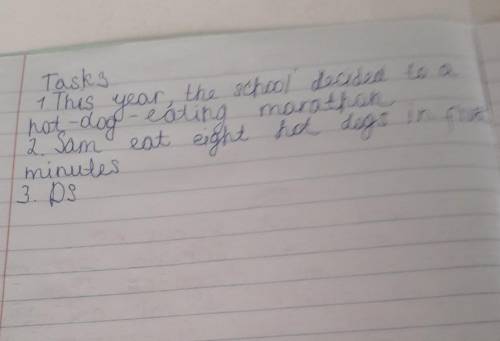 Tasks
1. This year, the school decided to a
hot-dog-eating marathon
2. Sam eat eight hot dogs in
minutes
3. DS